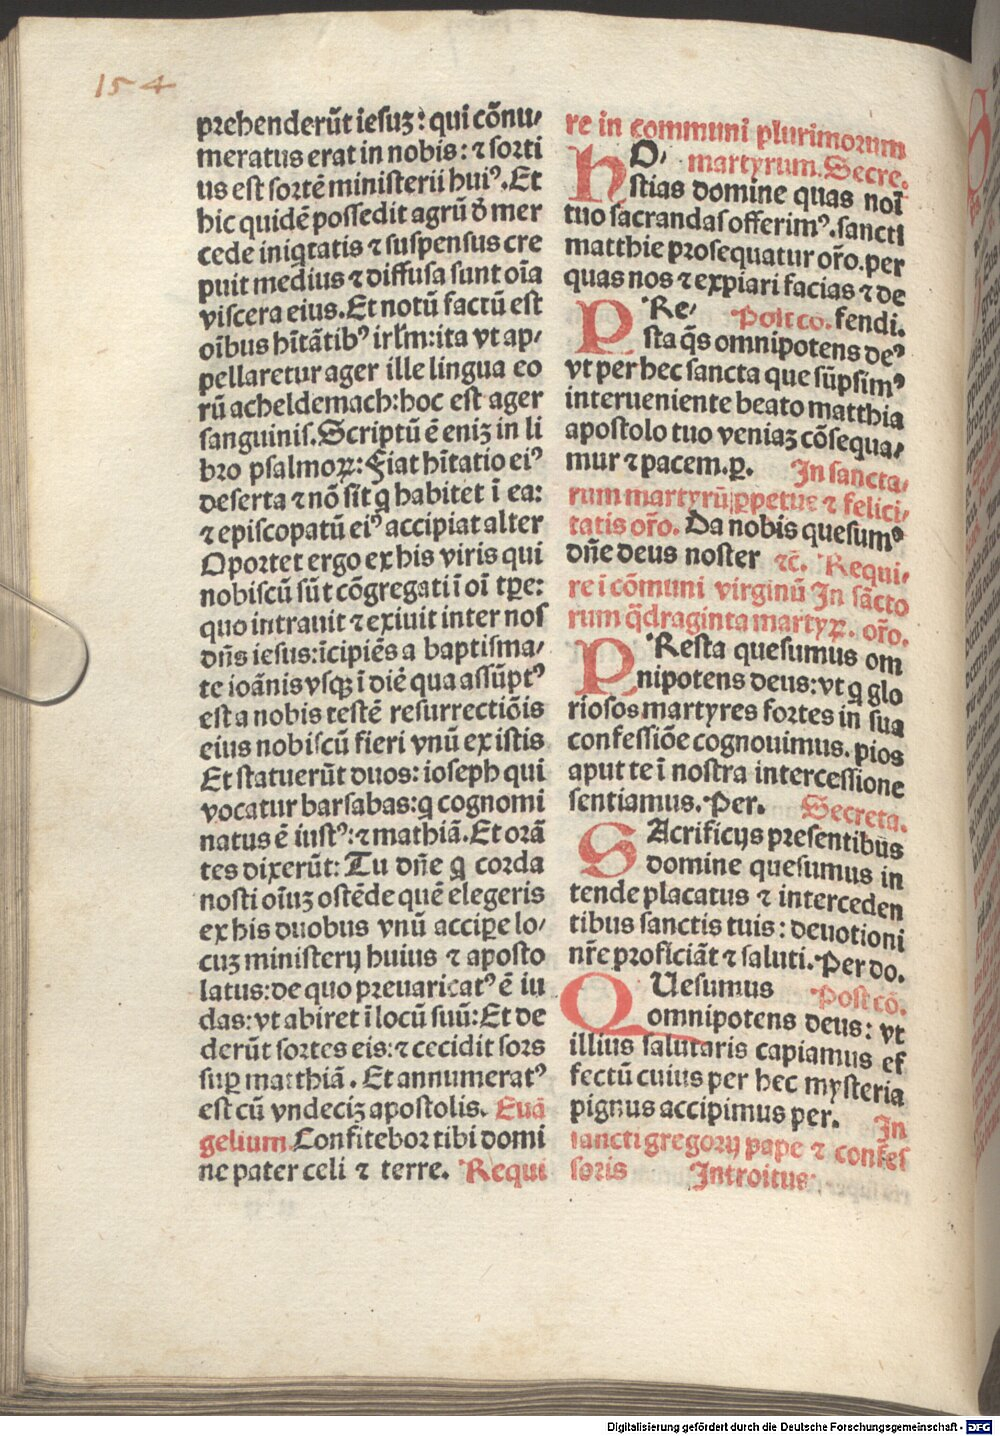 154
prehenderūt iesuʒ: qui cōnu⸗
meratus erat in nobis: ⁊ sorti
us est sortē ministerii huiꝰ. Et
hic quidē possedit agrū ō mer
cede iniq̇tatis ⁊ suspensus cre
puit medius ⁊ diffusa sunt oīa
viscera eius. Et notū factū est
oībus hītātibꝰ irľm: ita vt ap⸗
pellaretur ager ille lingua eo
rū acheldemach: hoc est ager
sanguinis. Scriptū ē eniʒ in li
bro psalmoꝝ: Fiat hītatio eiꝰ
deserta ⁊ nō sit q̇ habitet ī ea:
⁊ episcopatū eiꝰ accipiat alter
Oportet ergo ex his viris qui
nobiscū sūt cōgregati ī oī tꝑe:
quo intrauit ⁊ exiuit inter nos
dn̄s iesus: īcipiēs a baptisma⸗
te ioānis vsqꝫ ī diē qua assūptꝰ
est a nobis testē resurrectiōis
eius nobiscū fieri vnū ex istis
Et statuerūt duos: ioseph qui
vocatur barsabas: q̇ cognomi
natus ē iustꝰ: ⁊ mathiā. Et orā
tes dixerūt: Tu dn̄e q̇ corda
nosti oīuʒ ostēde quē elegeris
ex his duobus vnū acciꝑe lo⸗
cuʒ ministerij huius ⁊ aposto
latus: de quo preuaricatꝰ ē iu
das: vt abiret ī locū suū: Et de
derūt sortes eis: ⁊ cecidit sors
suꝑ matthiā. Et annumeratꝰ
est cū vndeciʒ apostolis. Euā
gelium Confitebor tibi domi
ne pater celi ⁊ terre. Requi
re in communi plurimorum
HO⸗ martyrum. Secre.
stias domine quas noī
tuo sacrandas offerimꝰ. sancti
matthie prosequatur or̄o. per
quas nos ⁊ expiari facias ⁊ de
PRe⸗ Post co. fendi.
sta q̄s omnipotens deꝰ
vt per hec sancta que sūpsimꝰ
interueniente beato matthia
apostolo tuo veniaʒ cōsequa⸗
mur ⁊ pacem. ꝑ. In sancta⸗
rum martyrū ꝑpetue ⁊ felici⸗
tatis or̄o. Da nobis quesumꝰ
dn̄e deus noster ⁊c̄. Requi⸗
re ī cōmuni virginū In sācto
rum q̄draginta martyꝝ. or̄o.
PResta quesumus om
nipotens deus: vt q̇ glo
riosos martyres fortes in sua
confessiōe cognouimus. pios
aput te ī nostra intercessione
sentiamus. Per. Secreta.
SAcrificijs presentibus
domine quesumus in
tende placatus ⁊ interceden
tibus sanctis tuis: deuotioni
nr̄e proficiāt ⁊ saluti. Per do.
QUesumus Post cō.
omnipotens deus: vt
illius salutaris capiamus ef
fectū cuius per hec mysteria
pignus accipimus per. In
sancti gregorij pape ⁊ confes
soris Introitus
Digitalisierung gefördert durch die Deutsche Forschungsgemeinschaft - DFG